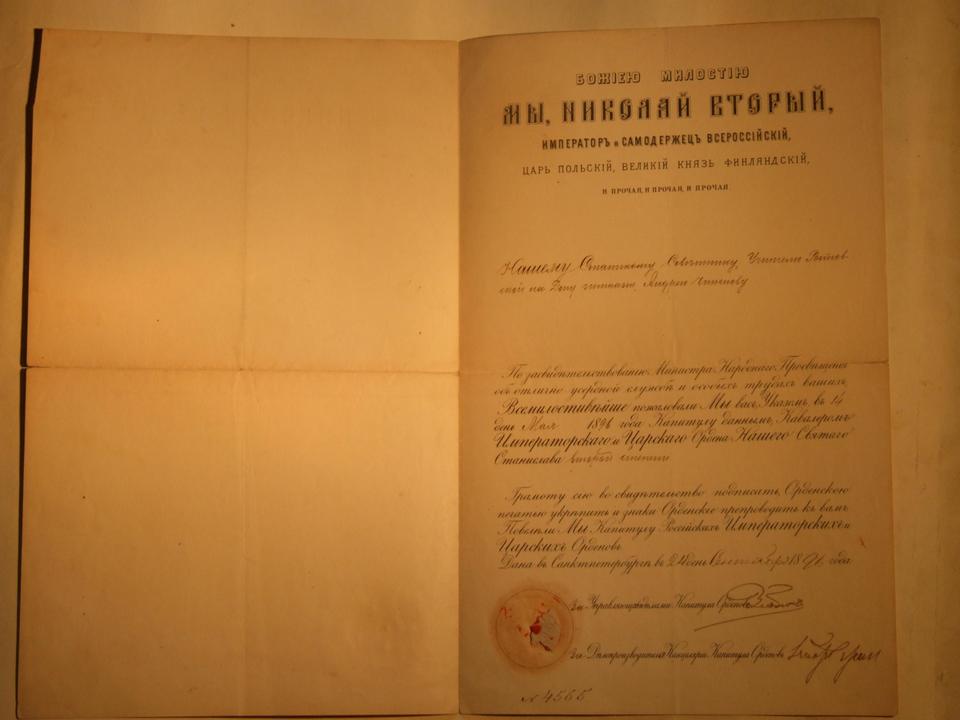 БОЖІЕЮ МИЛОСТІЮ
МЫ, НИКОЛАЙ ВТОРЫЙ,
ИМПЕРАТОРЪ и САМОДЕРЖЕЦЪ ВСЕРОССІЙСКІЙ,
ЦАРЬ ПОЛЬСКІЙ, ВЕЛИКІЙ КНЯЗЬ ФИНЛЯНДСКІЙ,
И ПРОЧАЯ, И ПРОЧАЯ, И ПРОЧАЯ
Нашему Статскому Совѣтнику, Учителю
на Дону гимназіи, Андрею
По засвидѣтельствованію Министра Народнаго Просвѣщенія
объ отлично усердной службѣ и особыхъ трудахъ вашихъ,
Всемилостивѣйше пожаловали Мы васъ, Указомъ, въ 14
день Мая 1896 года Капитулу даннымъ, Кавалеромъ
Императорскаго и Царскаго Ордена Нашего Святаго
Станислава второй степени
Грамоту сію во свидѣтельство подписать, Орденскою
печатью укрѣпить и знаки Орденскіе препроводить къ вамъ
Повелѣли Мы Капитулу Россійскихъ Императорскихъ и
Царскихъ Орденовъ.
Дана въ Санктпетербургѣ въ 24 день 189 года
За Управляющаго дѣлами Капитула Орденовъ
За Дѣлопроизводителя Канцеляріи Капитула Орденовъ
№ 4565